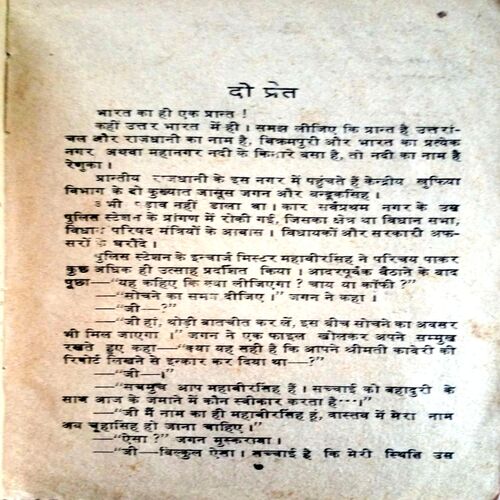 दो प्रेत
भारत का ही एक प्रान्त !
कहीं उत्तर भारत में ही । समझ लीजिए कि प्रान्त है उत्तरां-
चल और राजधानी का नाम है, विक्रमपुरी और भारत का प्रत्येक
नगर अथवा महानगर नदी के किनारे बसा है, तो नदी का नाम है
रेणुका ।
प्रान्तीय राजधानी के इस नगर में पहुंचते हैं केन्द्रीय खुफिया
विभाग के दो कुख्यात जासूस जगन और बन्दूकसिंह ।
अभी पड़ाव नहीं डाला था । कार सर्वप्रथम नगर के उस
पुलिस स्टेशन के प्रांगण में रोकी गई, जिसका क्षेत्र था विधान सभा,
विधान परिषद मंत्रियों के आवास । विधायकों और सरकारी अफ-
सरों के घरौंदे ।
पुलिस स्टेशन के इन्चार्ज मिस्टर महाबीरसिंह ने परिचय पाकर
कुछ अधिक ही उत्साह प्रदर्शित किया । आदरपूर्वक बैठाने के बाद
पूछा—“यह कहिए कि क्या लीजिएगा ? चाय या कॉफी ?”
—“सोचने का समय दीजिए ।” जगन ने कहा ।
—“जी—?”
—“जी हां, थोड़ी बातचीत कर लें, इस बीच सोचने का अवसर
भी मिल जाएगा ।” जगन ने एक फाइल खोलकर अपने सम्मुख
रखते हुए कहा—“क्या यह सही है कि आपने श्रीमती कावेरी की
रिपोर्ट लिखने से इन्कार कर दिया था—?”
—“जी—।”
—“सचमुच आप महाबीरसिंह हैं । सच्चाई को बहादुरी के
साथ आज के जमाने में कौन स्वीकार करता है···।”
—“जी मैं नाम का ही महाबीरसिंह हूं, वास्तव में मेरा नाम
अब चूहासिंह हो जाना चाहिए ।”
—“ऐसा ?” जगन मुस्कराया ।
—“जी—बिल्कुल ऐसा । सच्चाई है कि मेरी स्थिति उस